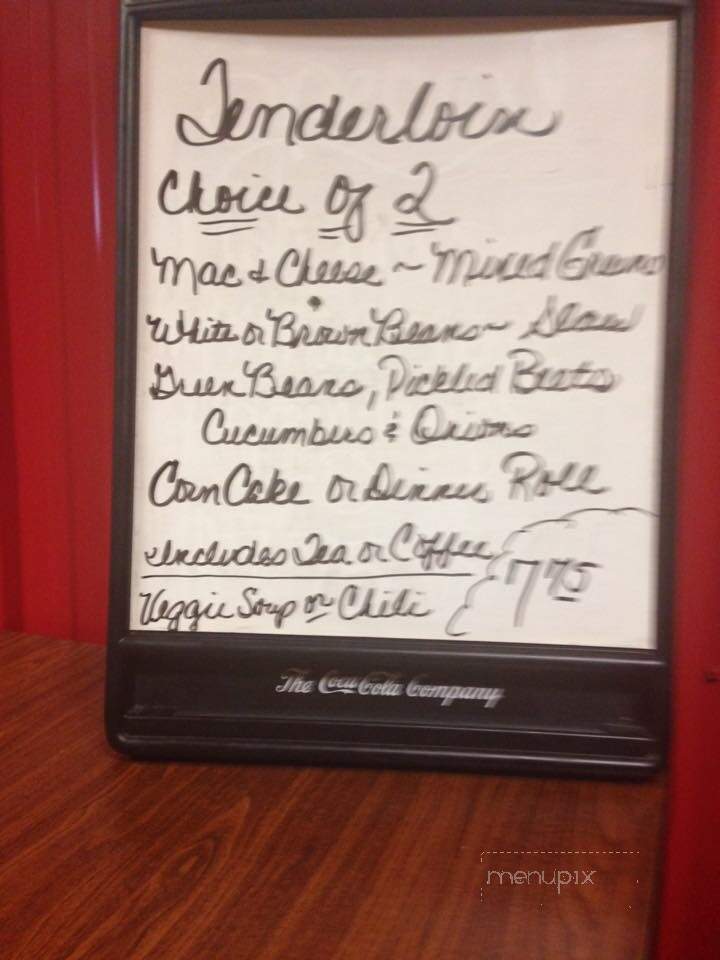 Tenderloin
Choice of 2
Mac & Cheese ~ Mixed Greens
White or Brown Beans ~ Slaw
Green Beans, Pickled Beets
Cucumbers & Onions
Corn Cake or Dinner Roll
Includes Tea or Coffee
7 95
Veggie Soup or Chili
The Coca-Cola Company
menupix